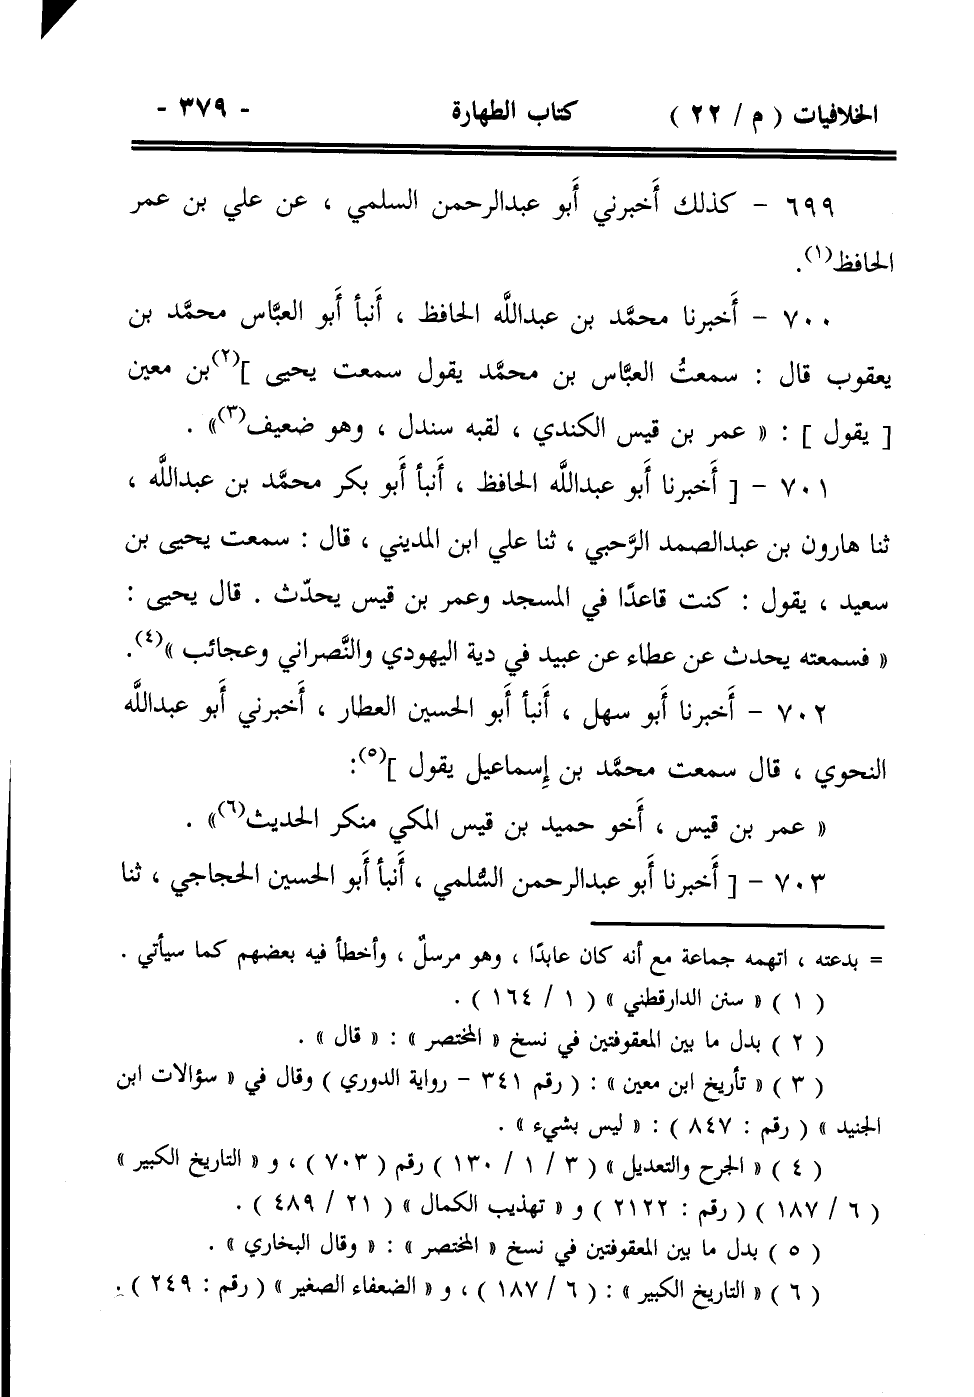 الخلافيات ( م / ٢٢ ) كتاب الطهارة - ٣٧٩ -
٦٩٩ - كذلك أَخبرني أَبو عبدالرحمن السلمي ، عن علي بن عمر
الحافظ(١).
٧٠٠ - أَخبرنا محمَّد بن عبداللَّه الحافظ ، أَنبأ أَبو العبَّاس محمَّد بن
يعقوب قال : سمعتُ العبَّاس بن محمَّد يقول سمعت يحيى ](٢)بن معين
[ يقول ] : « عمر بن قيس الكندي ، لقبه سندل ، وهو ضعيف(٣)» .
٧٠١ - [ أَخبرنا أَبو عبداللَّه الحافظ ، أَنبأ أَبو بكر محمَّد بن عبداللَّه ،
ثنا هارون بن عبدالصمد الرَّحبي ، ثنا علي ابن المديني ، قال : سمعت يحيى بن
سعيد ، يقول : كنت قاعدًا في المسجد وعمر بن قيس يحدّث . قال يحيى :
« فسمعته يحدث عن عطاء عن عبيد في دية اليهودي والنَّصراني وعجائب »(٤).
٧٠٢ - أَخبرنا أَبو سهل ، أَنبأ أَبو الحسين العطار ، أَخبرني أَبو عبداللَّه
النحوي ، قال سمعت محمَّد بن إِسماعيل يقول ](٥):
« عمر بن قيس ، أَخو حميد بن قيس المكي منكر الحديث(٦)» .
٧٠٣ - [ أَخبرنا أَبو عبدالرحمن السُّلمي ، أَنبأ أَبو الحسين الحجاجي ، ثنا
= بدعته ، اتهمه جماعة مع أنه كان عابدًا ، وهو مرسلٌ ، وأخطأ فيه بعضهم كما سيأتي .
( ١ ) « سنن الدارقطني » ( ١ / ١٦٤ ) .
( ٢ ) بدل ما بين المعقوفتين في نسخ « المختصر » : « قال » .
( ٣ ) « تأريخ ابن معين » : ( رقم ٣٤١ - رواية الدوري ) وقال في « سؤالات ابن
الجنيد » ( رقم : ٨٤٧ ) : « ليس بشيء » .
( ٤ ) « الجرح والتعديل » ( ٣ / ١ / ١٣٠ ) رقم ( ٧٠٣ ) ، و « التاريخ الكبير »
( ٦ / ١٨٧ ) ( رقم : ٢١٢٢ ) و « تهذيب الكمال » ( ٢١ / ٤٨٩ ) .
( ٥ ) بدل ما بين المعقوفتين في نسخ « المختصر » : « وقال البخاري » .
( ٦ ) « التاريخ الكبير » : ( ٦ / ١٨٧ ) ، و « الضعفاء الصغير » ( رقم : ٢٤٩ ) .